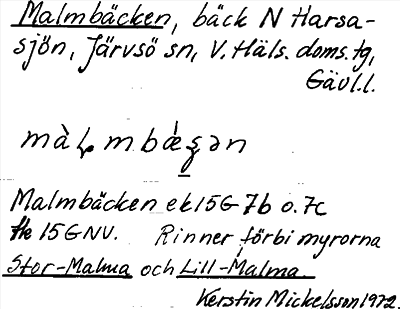 Malmbäcken, bäck N Harsa-
sjön, Järvsö sn, V. Häls. doms. tg,
Gävl.l.
Malmbäcken ek 15G 7b o. 7c
15 G NV. Rinner förbi myrorna
Stor-Malma och Lill-Malma.
Kerstin Mickelsson 1972.